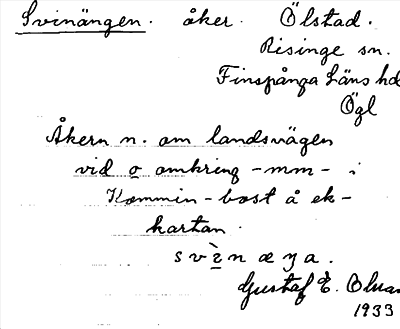 Svinängen. åker. Ölstad.
Risinge sn.
Finspånga Läns hd
Ögl
Åkern n. om landsvägen
vid o omkring -mm- i
Kommin-bost å ek-
kartan.
Gustaf E.
1933